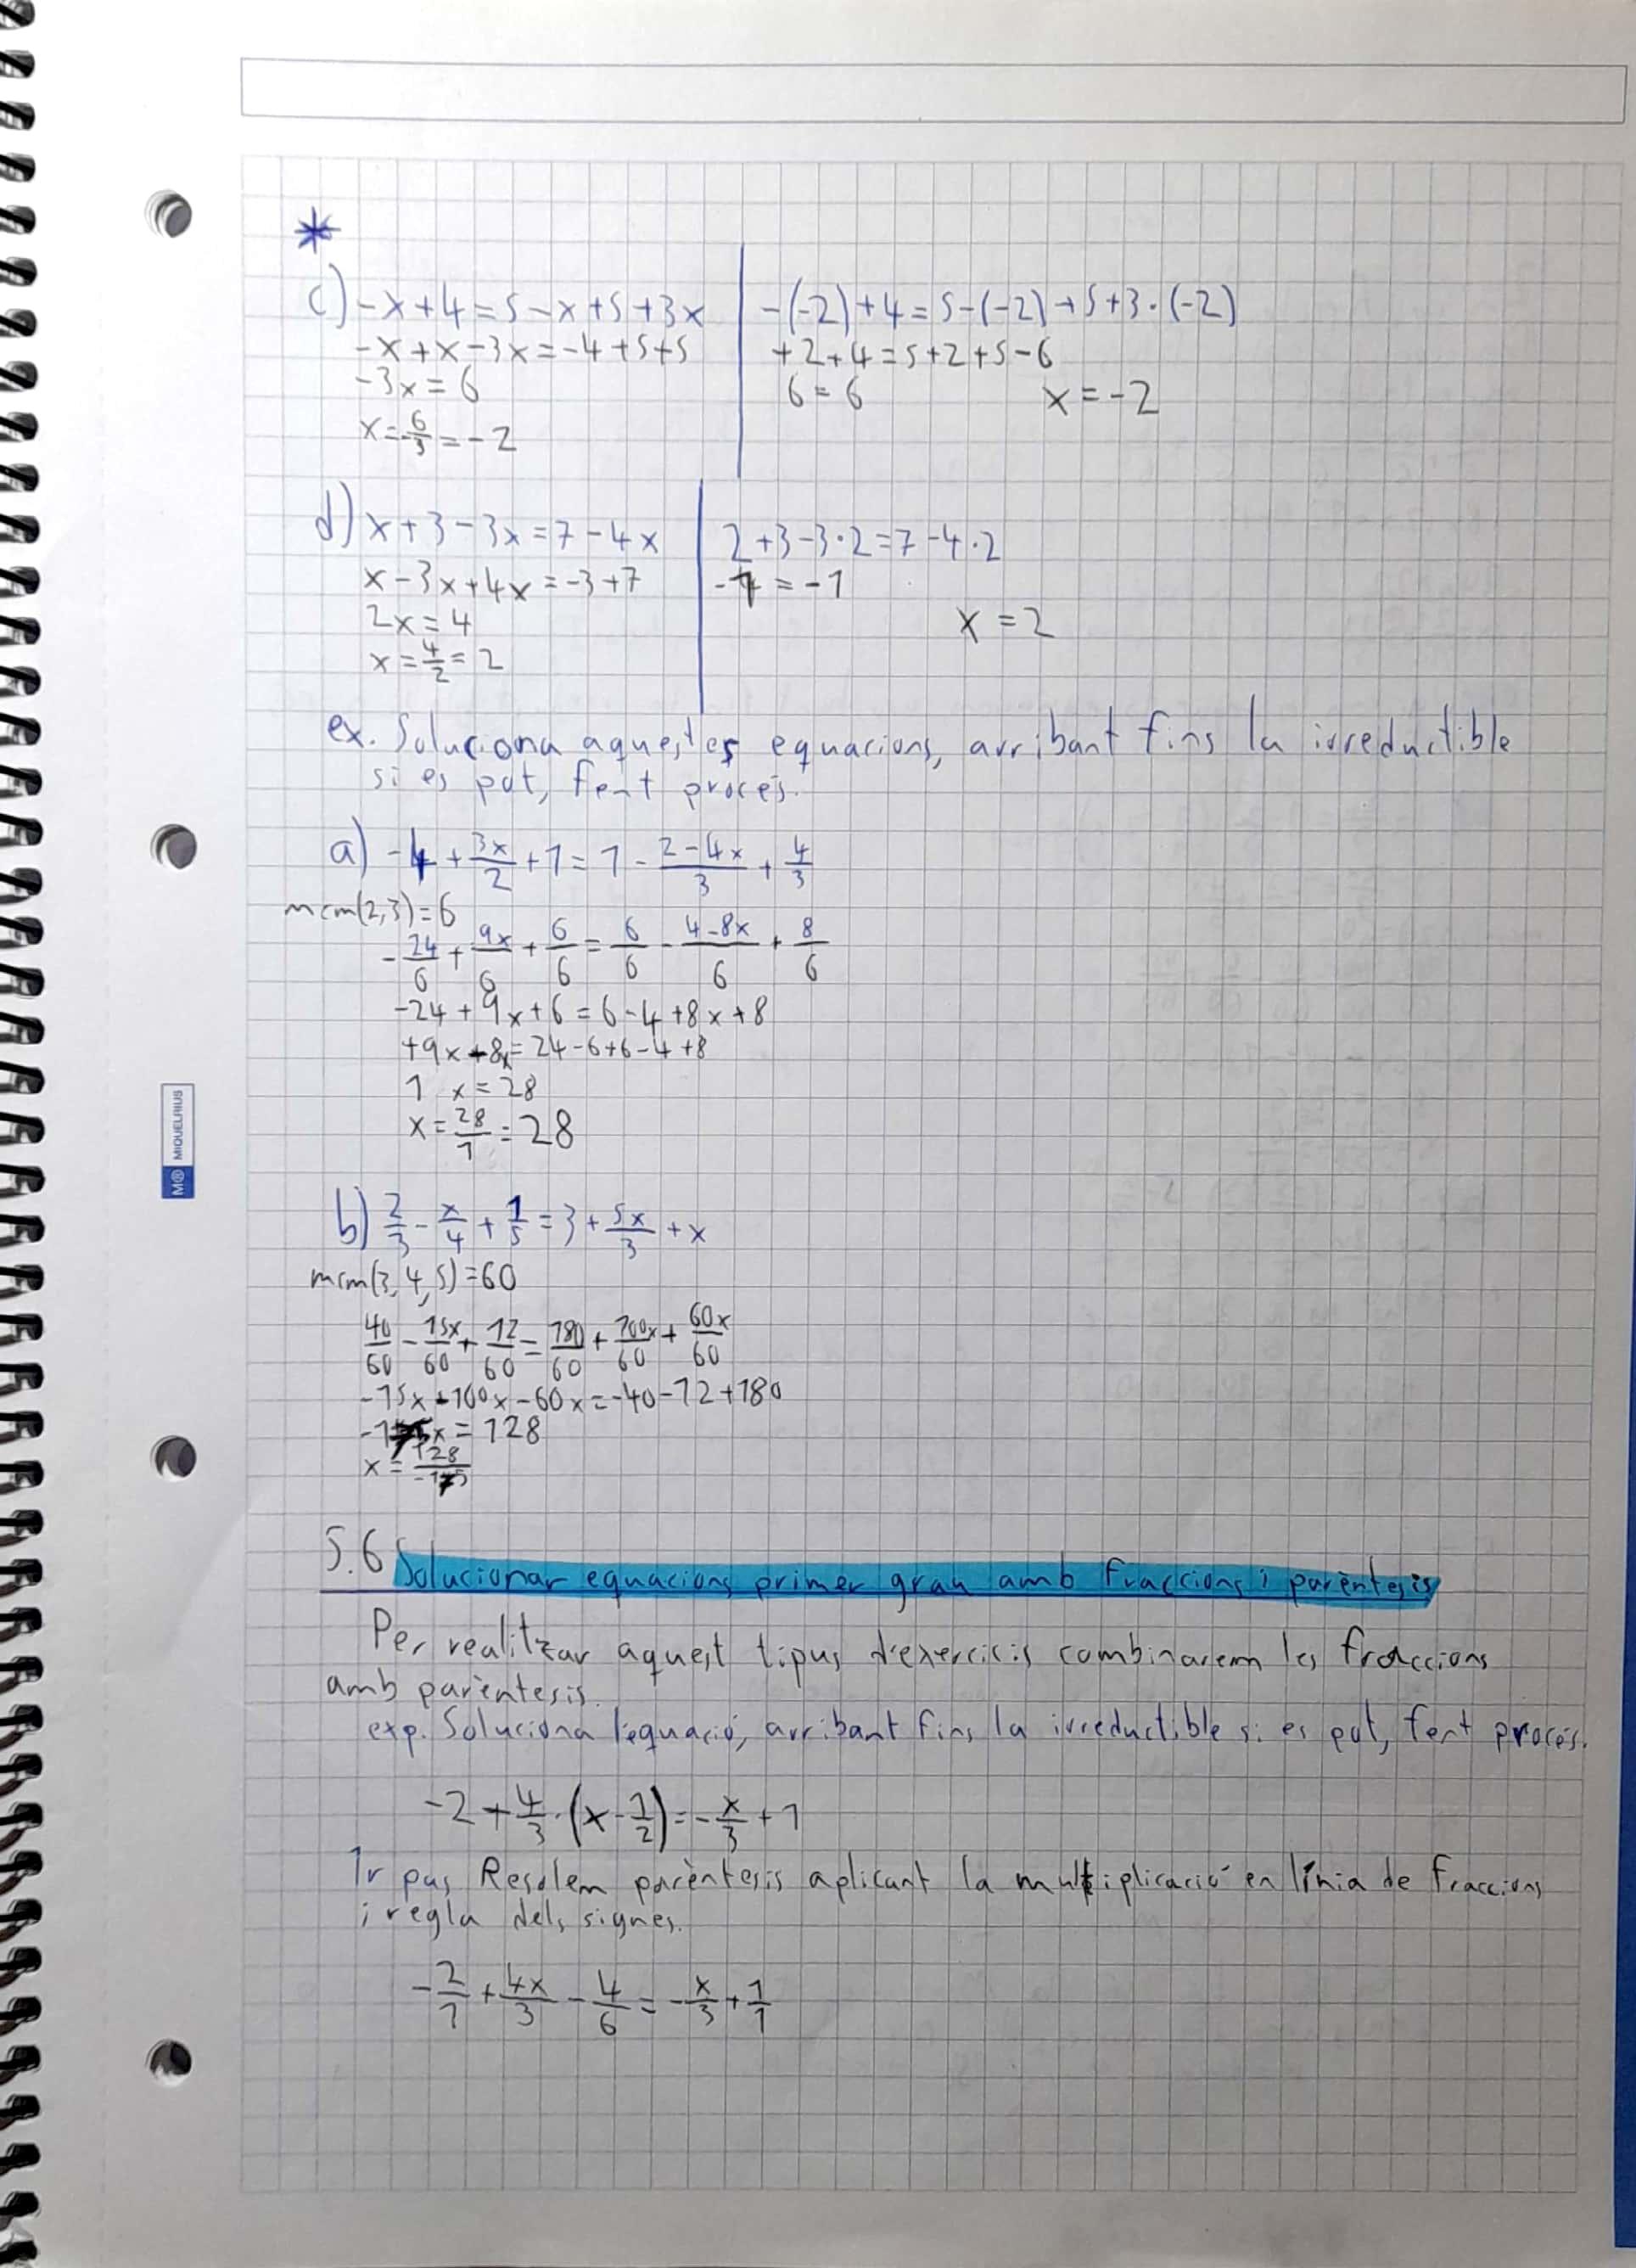 *
c) -x+4=5-x+5+3x | -(-2)+4=5-(-2)+5+3·(-2)
-x+x-3x=-4+5+5 | +2+4=5+2+5-6
-3x=6 | 6=6 x=-2
x=-6/3=-2
d) x+3-3x=7-4x | 2+3-3·2=7-4·2
x-3x+4x=-3+7 | -1=-1
2x=4 x=2
x=4/2=2
ex. Soluciona aquestes equacions, arribant fins la irreductible
si es pot, fent procés.
a) -4+3x/2+1=1-2-4x/3+4/3
mcm(2,3)=6
-24/6+9x/6+6/6=6/6-4-8x/6+8/6
-24+9x+6=6-4+8x+8
+9x-8x=24-6+6-4+8
1x=28
x=28/1=28
b) 2/3-x/4+1/5=3+5x/3+x
mcm(3,4,5)=60
40/60-15x/60+12/60=180/60+100x/60+60x/60
-15x-100x-60x=-40-12+180
-175x=128
x=128/-175
5.6 Solucionar equacions primer grau amb fraccions i parèntesis
Per realitzar aquest tipus d'exercicis combinarem les fraccions
amb parèntesis.
exp. Soluciona l'equació, arribant fins la irreductible si es pot, fent procés.
-2+4/3·(x-1/2)=-x/3+1
1r pas Resolem parèntesis aplicant la multiplicació en línia de fraccions
i regla dels signes.
-2/1+4x/3-4/6=-x/3+1/1
M® MIQUELRIUS